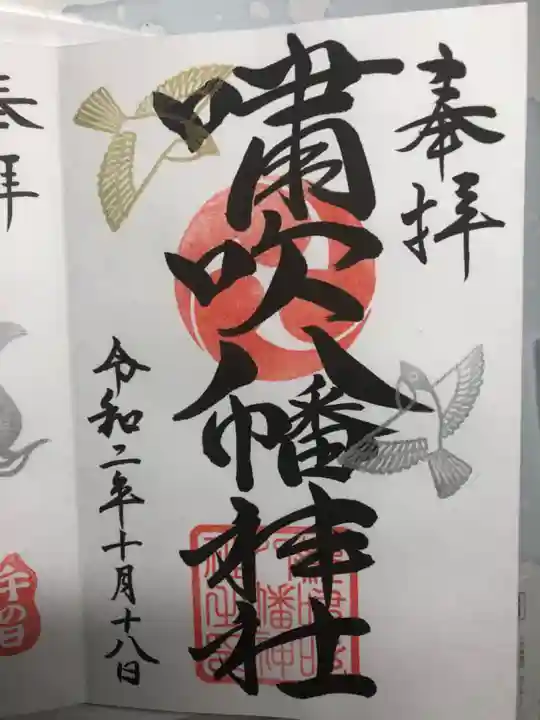 奉拝
嘯吹八幡神社
令和二年十月十八日
奉拝
午の日